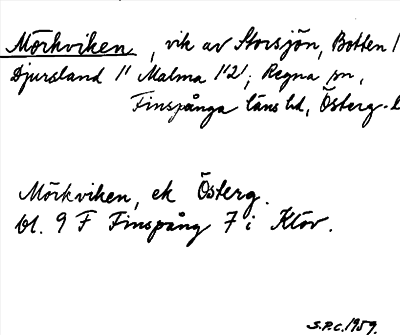 Mörkviken, vik av Storsjön, Botten 1
Djursland 1¹ Malma 1¹2¹; Regna sn,
Finspånga läns hd, Österg. l
Mörkviken, ek Österg.
bl. 9 F Finspång 7 i Klöv.
S.P.C. 1959.